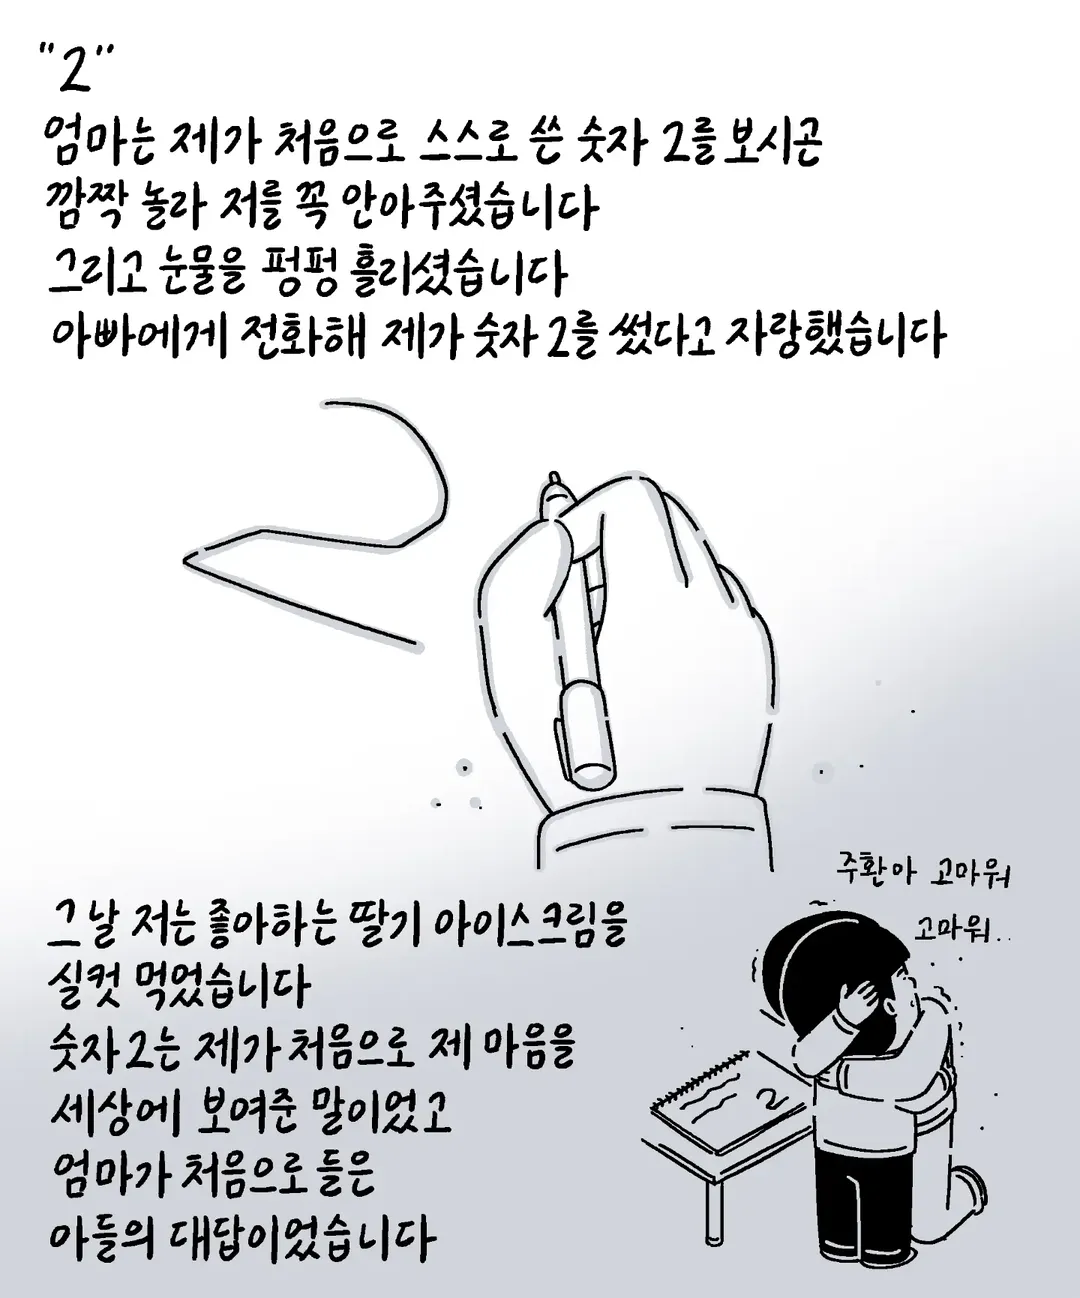 "2"
엄마는 제가 처음으로 스스로 쓴 숫자 2를 보시곤
깜짝 놀라 저를 꼭 안아주셨습니다
그리고 눈물을 펑펑 흘리셨습니다
아빠에게 전화해 제가 숫자 2를 썼다고 자랑했습니다
그날 저는 좋아하는 딸기 아이스크림을
실컷 먹었습니다
숫자 2는 제가 처음으로 제 마음을
세상에 보여준 말이었고
엄마가 처음으로 들은
아들의 대답이었습니다
주환아 고마워
고마워..
2